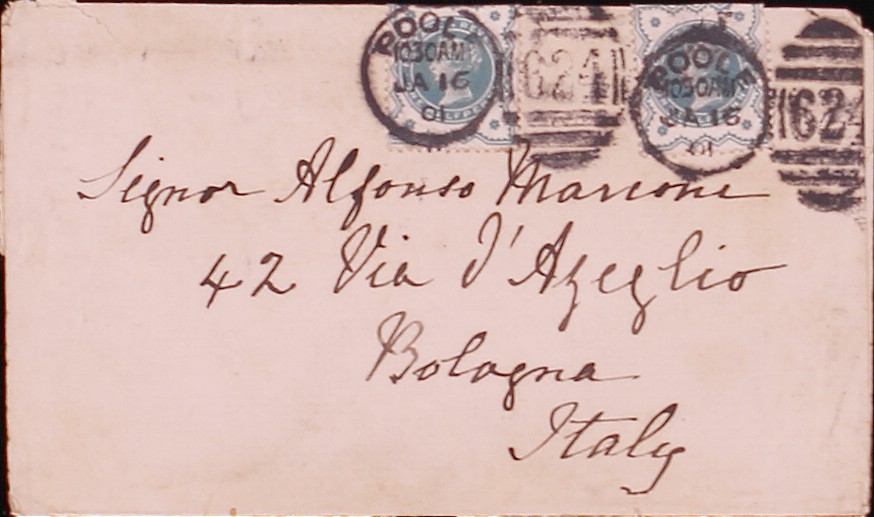 POOLE
10 30 AM
JA 16
01
624
POOLE
10 30 AM
JA 16
01
624
Signor Alfonso Marconi
42 Via d'Azeglio
Bologna
Italy